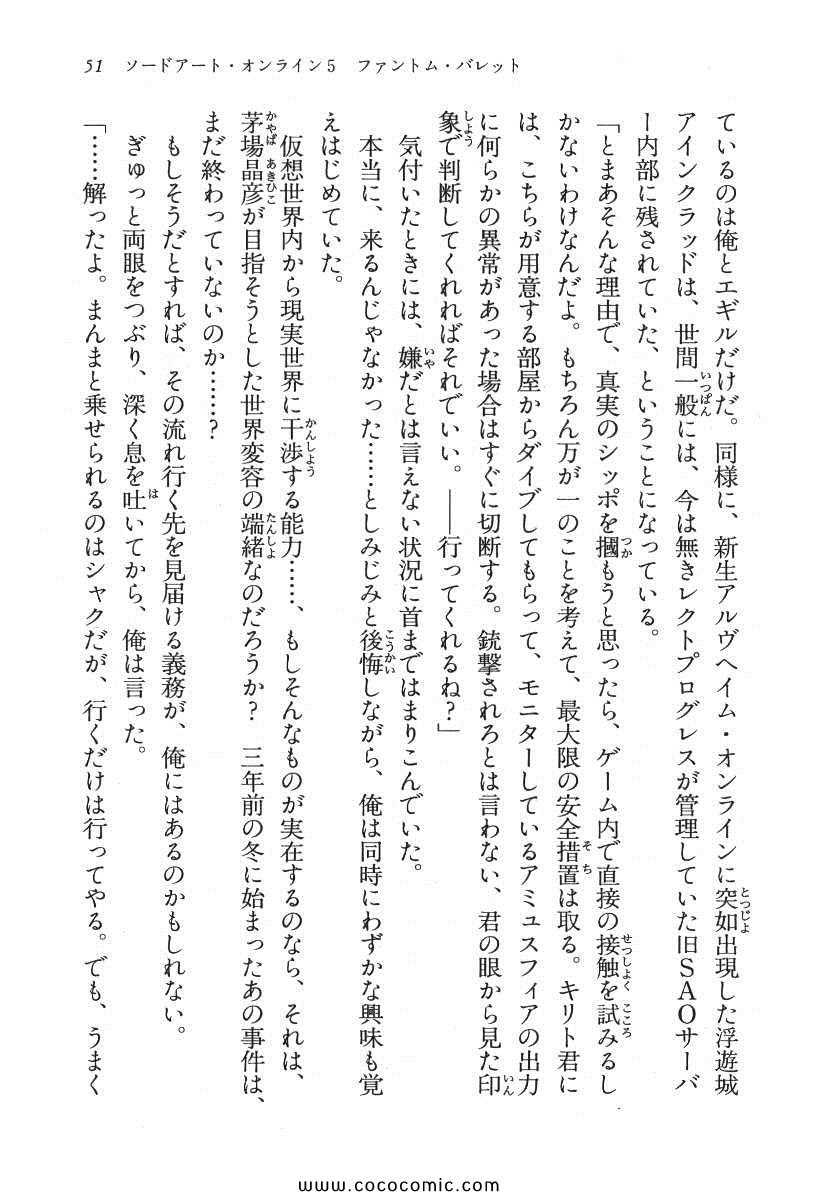 51　ソードアート・オンライン5　ファントム・バレット
ているのは俺とエギルだけだ。同様に、新生アルヴヘイム・オンラインに突如出現した浮遊城
アインクラッドは、世間一般には、今は無きレクトプログレスが管理していた旧ＳＡＯサーバ
ー内部に残されていた、ということになっている。
「とまあそんな理由で、真実のシッポを摑もうと思ったら、ゲーム内で直接の接触を試みるし
かないわけなんだよ。もちろん万が一のことを考えて、最大限の安全措置は取る。キリト君に
は、こちらが用意する部屋からダイブしてもらって、モニターしているアミュスフィアの出力
に何らかの異常があった場合はすぐに切断する。銃撃されろとは言わない、君の眼から見た印
象で判断してくれればそれでいい。――行ってくれるね？」
　気付いたときには、嫌だとは言えない状況に首まではまりこんでいた。
　本当に、来るんじゃなかった……としみじみと後悔しながら、俺は同時にわずかな興味も覚
えはじめていた。
　仮想世界内から現実世界に干渉する能力……、もしそんなものが実在するのなら、それは、
茅場晶彦が目指そうとした世界変容の端緒なのだろうか？　三年前の冬に始まったあの事件は、
まだ終わっていないのか……？
　もしそうだとすれば、その流れ行く先を見届ける義務が、俺にはあるのかもしれない。
　ぎゅっと両眼をつぶり、深く息を吐いてから、俺は言った。
「……解ったよ。まんまと乗せられるのはシャクだが、行くだけは行ってやる。でも、うまく
www.cococomic.com